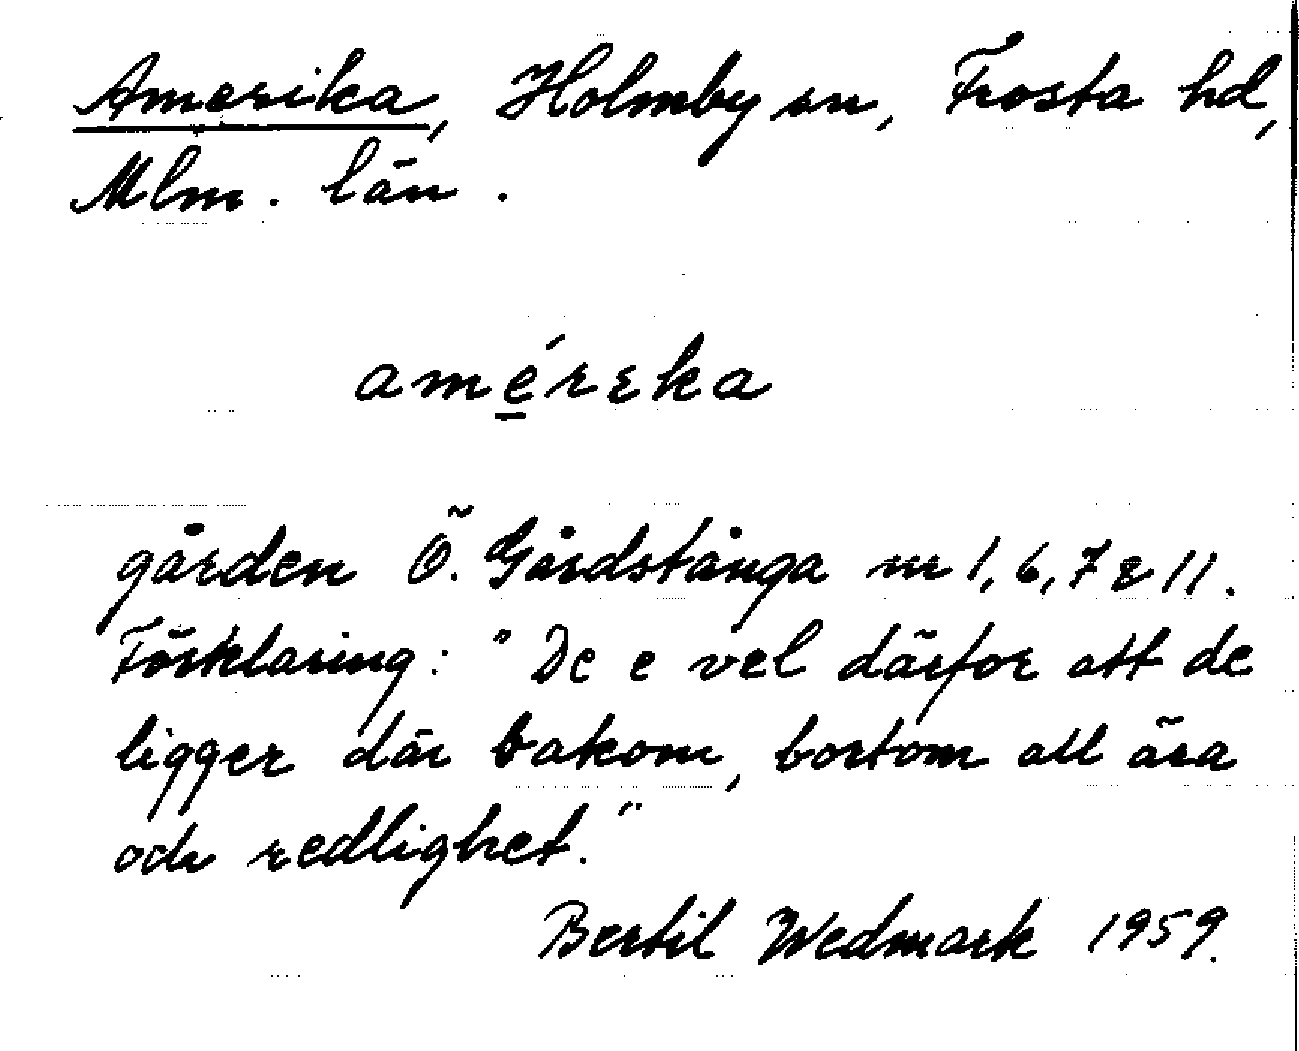 Amerika, Holmby sn, Frosta hd,
Mlm. län.
améreka
gården Ö. Gårdstånga nr 1, 6, 7 & 11.
Förklaring: "De e vel därför att de
ligger där bakom, bortom all ära
och redlighet."
Bertil Wedmark 1959.